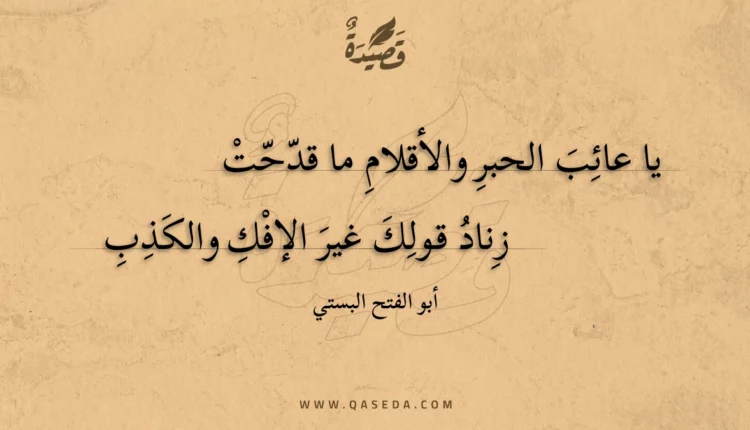 قَصِيْدَةٌ
يا عائِبَ الحبرِ والأقلامِ ما قدّحّتْ
زِنادُ قولِكَ غيرَ الإفْكِ والكَذِبِ
أبو الفتح البستي
WWW.QASEDA.COM